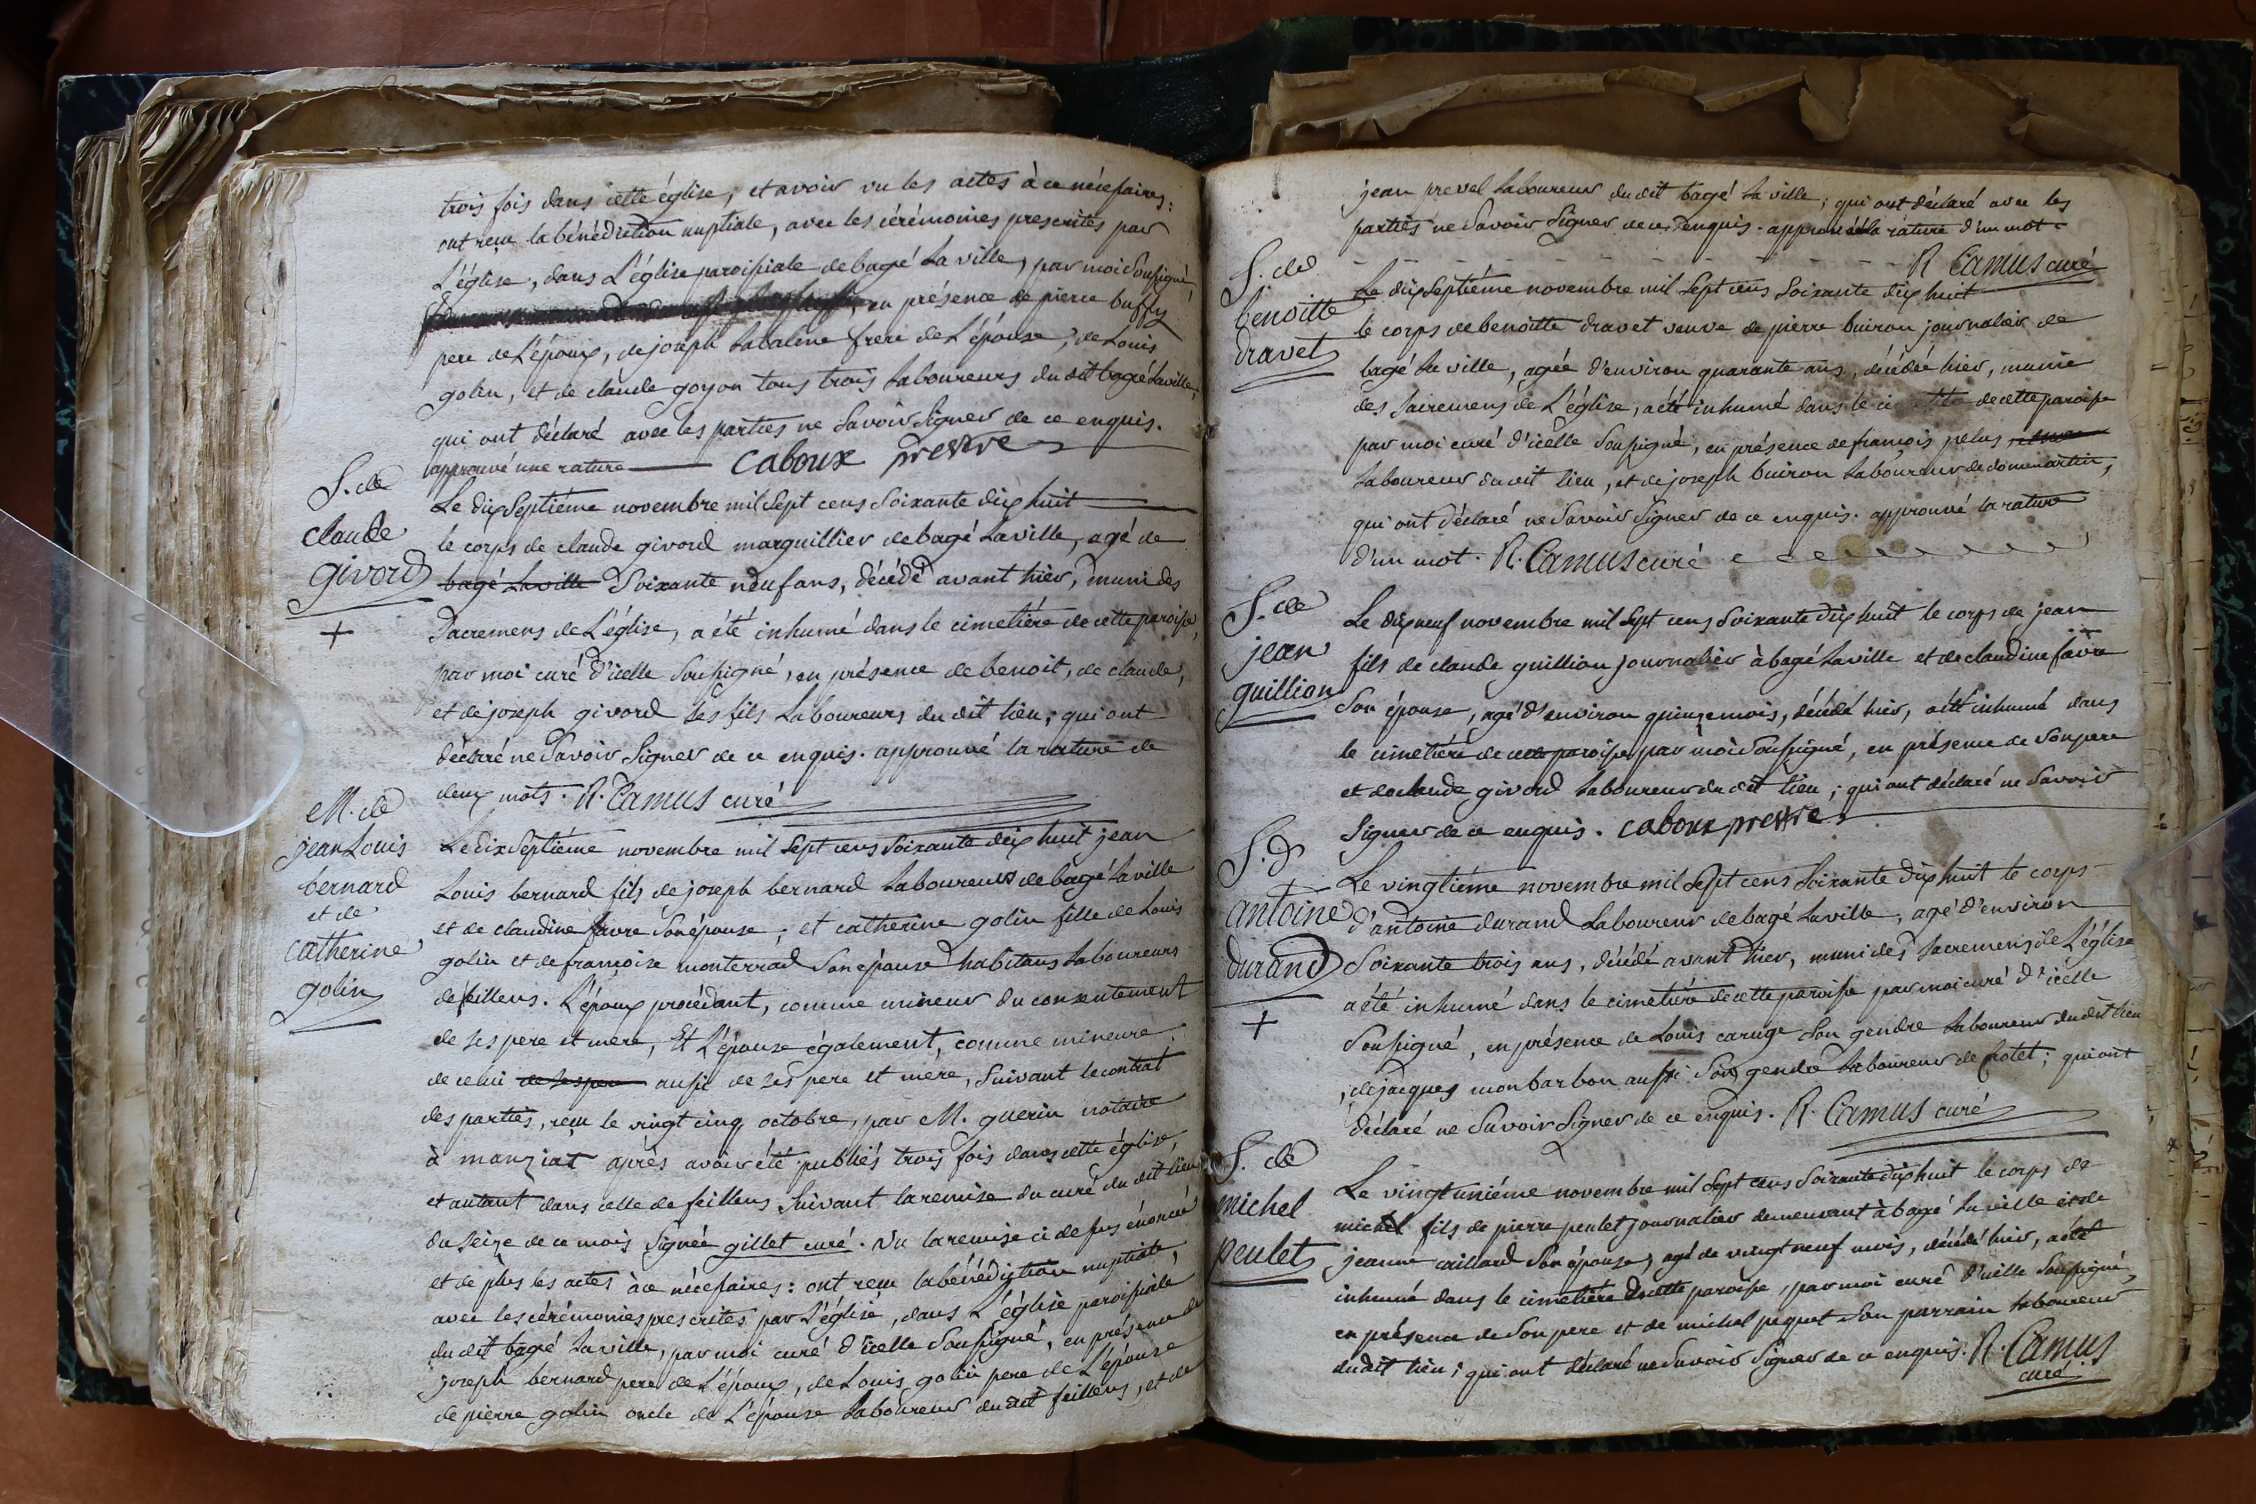 trois fois dans cette église, et avoir vu les actes à ce nécessaires:
ont reçu la bénédiction nuptiale, avec les cérémonies prescrites par
L'église, dans L'église paroissiale de bagé la ville, par moi soussigné,
en présence de pierre buffy
pere de L'époux, de joseph Labalme frere de L'épouse, de Louis
golin, et de claude goyon tous trois Laboureurs du dit bagé Laville,
qui ont déclaré avec les parties ne savoir signer de ce enquis.
approuvé une rature caboux prestre
S. de
claude
givord
Le dix septiéme novembre mil sept cens soixante dix huit
le corps de claude givord marguillier de bagé Laville, agé de
bagé Laville soixante neuf ans, décédé avant hier, muni des
sacremens de L'église, a été inhumé dans le cimetiére de cette paroisse,
par moi curé d'icelle soussigné, en présence de benoit, de claude,
et de joseph givord ses fils Laboureurs du dit lieu; qui ont
déclaré ne savoir signer de ce enquis. approuvé la rature de
deux mots. R. Camus curé
M. de
jean Louis
bernard
et de
catherine
golin
Le dix septiéme novembre mil sept cens soixante dix huit jean
Louis bernard fils de joseph bernard Laboureur de bagé Laville
et de claudine favre son épouse; et catherine golin fille de Louis
golin et de françoise monterrad son épouse habitans Laboureurs
de feillens. L'époux procédant, comme mineur du consentement
de ses pere et mere, Et L'épouse également, comme mineure,
de celui de ses pere aussi de ses pere et mere, suivant le contrat
des parties, reçu le vingt cinq octobre, par M. guerin notaire
à manziat après avoir été publiés trois fois dans cette église,
et autant dans celle de feillens suivant la remise du curé du dit lieu
du seize de ce mois signée gillet curé. Vu la remise ci dessus énoncée
et de plus les actes à ce nécessaires: ont reçu la bénédiction nuptiale,
avec les cérémonies prescrites par L'église, dans L'église paroissiale
du dit bagé Laville, par moi curé d'icelle soussigné, en présence de
joseph bernard pere de L'époux, de Louis golin pere de L'épouse
de pierre golin oncle de L'épouse Laboureur du dit feillens, et de
jean prevel Laboureur du dit bagé La ville; qui ont déclaré avec les
parties ne savoir signer de ce enquis. approuvé la rature d'un mot.
R Camus curé
S. de
benoitte
dravet
Le dix septiéme novembre mil sept cens soixante dix huit
le corps de benoitte dravet veuve de pierre buiron journalier de
bagé La ville, agée d'environ quarante ans, décédée hier, munie
des sacremens de L'église, a été inhumé dans le de cette paroisse
par moi curé d'icelle soussigné, en présence de françois pelus
Laboureur du dit lieu, et de joseph buiron Laboureur de dommartin,
qui ont déclaré ne savoir signer de ce enquis. approuvé la rature
d'un mot. R. Camus curé
S. de
jean
guillion
Le dix neuf novembre mil sept cens soixante dix huit le corps de jean
fils de claude guillion journalier à bagé Laville et de claudine favre
son épouse, agé d'environ quinze mois, décédé hier, a été inhumé dans
le cimetiére de cette paroisse par moi soussigné, en présence de son pere
et de claude givord Laboureur du dit lieu; qui ont déclaré ne savoir
signer de ce enquis. caboux prestre
S. d'
antoine
durand
Le vingtiéme novembre mil sept cens soixante dix huit le corps
d'antoine durand Laboureur de bagé Laville, agé d'environ
soixante trois ans, décédé avant hier, muni des sacremens de L'église
a été inhumé dans le cimetiére de cette paroisse par moi curé d'icelle
soussigné, en présence de Louis caruge son gendre Laboureur du dit lieu
, de jacques monbarbon aussi son gendre Laboureur de crotet; qui ont
déclaré ne savoir signer de ce enquis. R. Camus curé
S. de
michel
peulet
Le vingt uniéme novembre mil sept cens soixante dix huit le corps de
michel fils de pierre peulet journalier demeurant à bagé La ville et de
jeanne caillard son épouse, agé de vingt neuf mois, décédé hier, a été
inhumé dans le cimetiére de cette paroisse, par moi curé d'icelle soussigné,
en présence de son pere et de michel peguet son parrain Laboureur
du dit lieu; qui ont déclaré ne savoir signer de ce enquis. R. Camus
curé